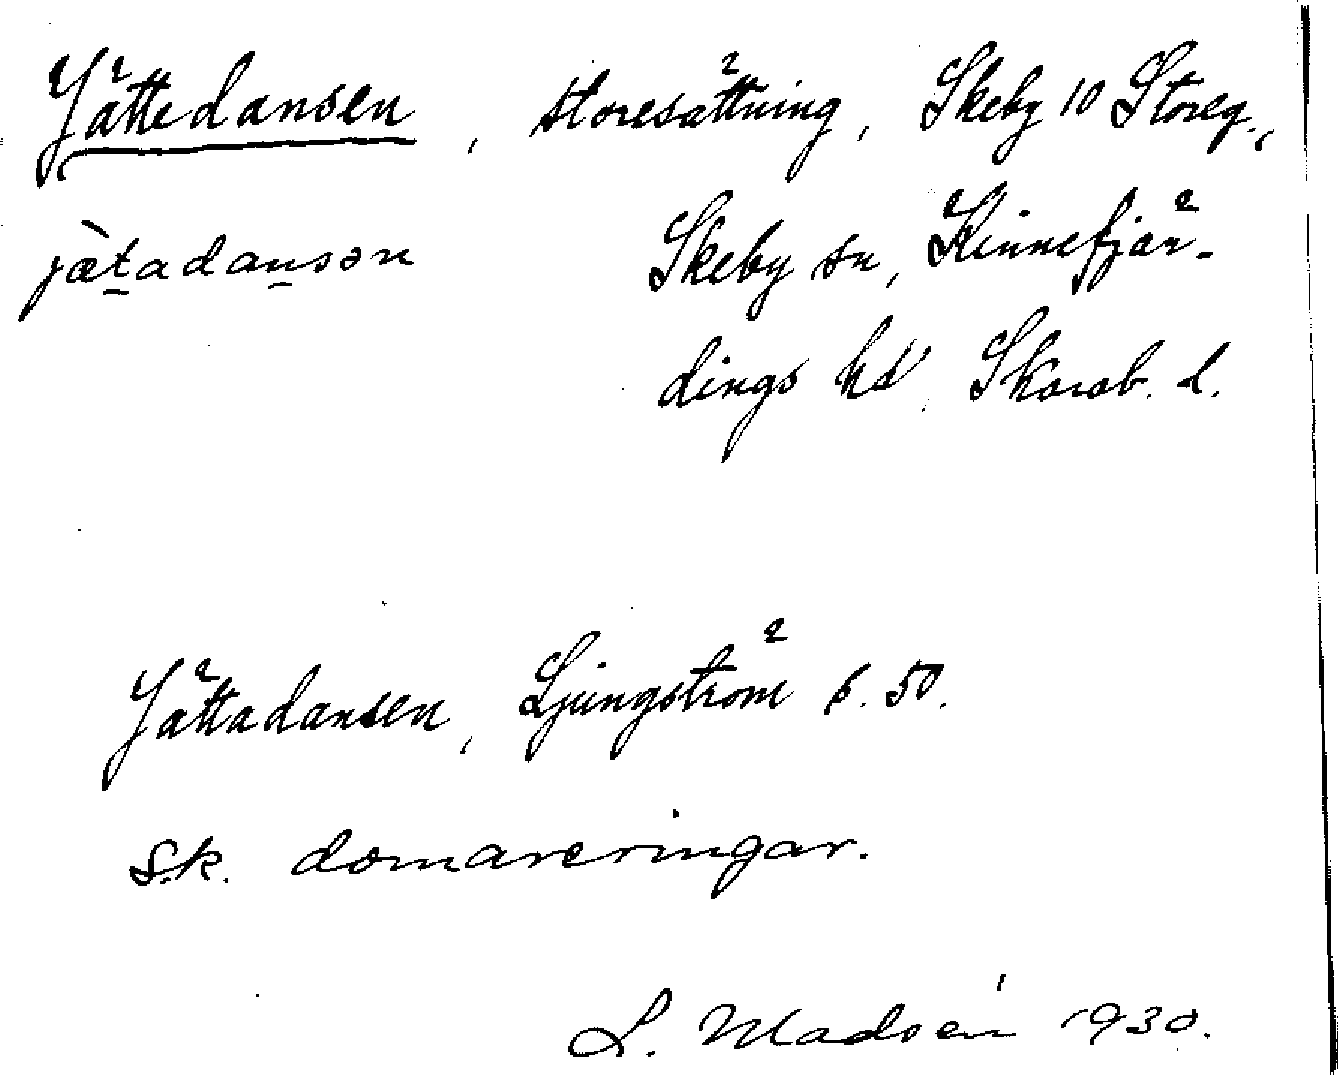 Jättedansen, stensättning, Skeby 10 Storeg.,
jæ̀tadansən Skeby sn, Kinnefjär-
dings hd, Skarab. l.
Jättadansen, Ljungström s. 50.
s.k. domareringar.
L. Madsén 1930.